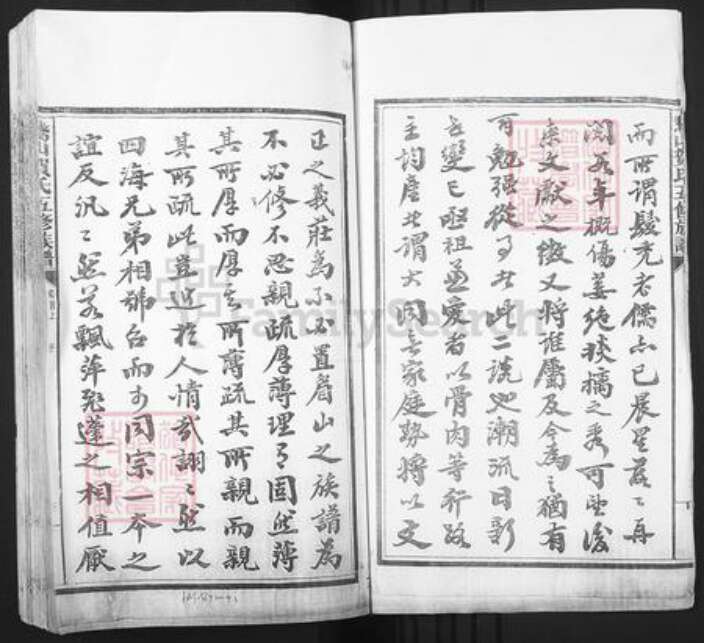 而所謂髮禿老儒亦已晨星落〻再
閱若干年概傷萎絕摭之秀可望後
來文獻之徵又將誰屬及今為之猶有
可勉強從事者此二說也潮流日新
世變已亟祖並愛者以骨肉等行路
主均產者謂大同無家庭勢將以文
正之義莊為不必置眉山之族譜為
不必修不思親疏厚薄理之固然薄
其所厚而厚其所薄疏其所親而親
其所疏此豈近於人情哉詡〻然以
四海兄弟相號召而於同宗一本之
誼反汎〻然若飄萍飛蓬之相值厥
氏五修族譜
FamilySearch